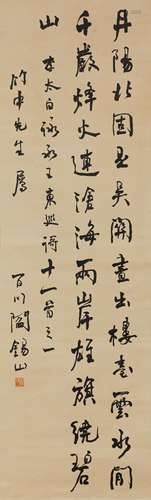 丹陽北固是吳關畫出樓臺雲水間
千巖烽火連滄海兩岸旌旗繞碧
山 李太白詠永王東巡詩十一首之一
竹中先生屬
百川閻錫山